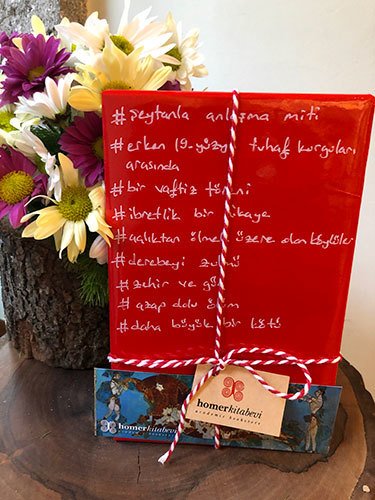 #şeytanla anlaşma miti
#erken 19.yüzyıl tuhaf kurguları
arasında
#bir vaftiz töreni
#ibretlik bir hikaye
#açlıktan ölmek üzere olan köylüler
#derebeyi zulmü
#zehir ve
#azap dolu ölüm
#daha büyük bir kötü
homerkitabevi
academic bookstore
homerkitabevi